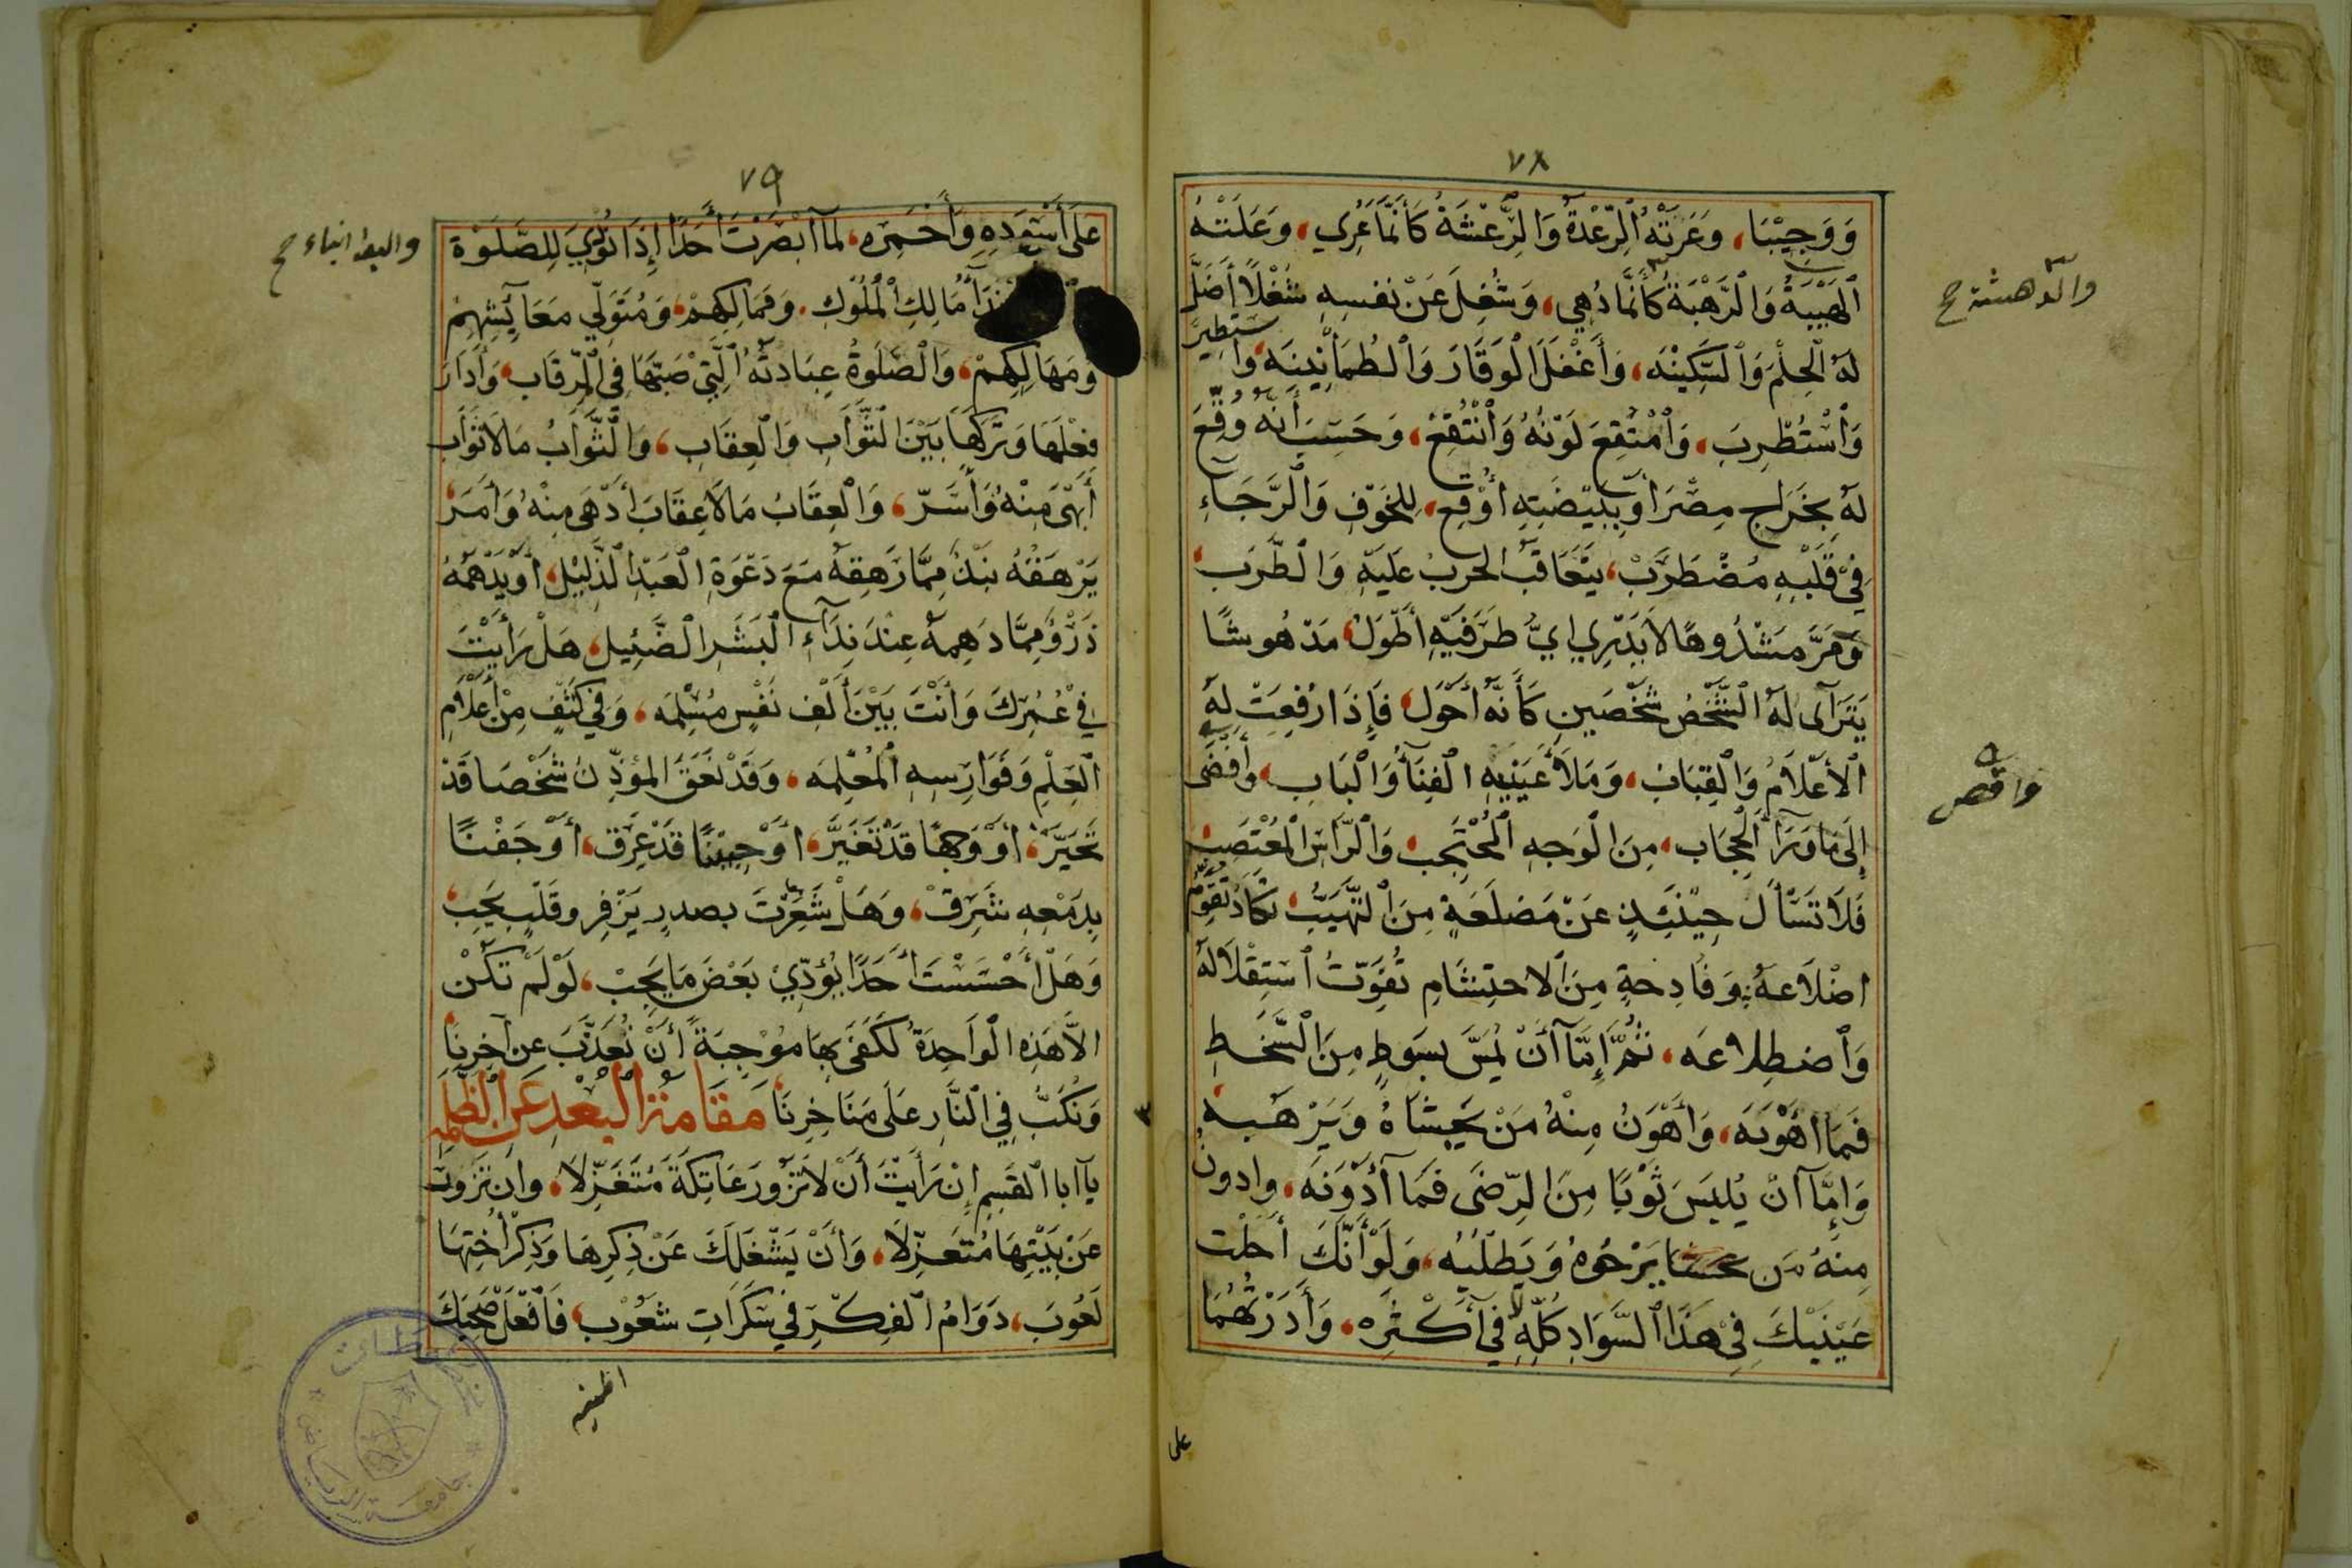 ٧٨
وَوَجِيْبًا، وَعَرَتْهُ ٱلرِّعْدَةُ وَالرَّعْشَةُ كَأَنَّمَا عُرِي، وَعَلَتْهُ
ٱلْهَيْبَةُ وَالرَّهْبَةُ كَأَنَّمَا دُهِي، وَشُغِلَ عَنْ نفسِهِ شُغْلًا أَضَلَّ
والدهشة ح
لَهُ الْحِلْمَ وَٱلسَّكِيْنَه، وَأَغْفَلَ الْوَقَارَ وَٱلطُمَأْنِيْنَه، وَاستطِيرَ
وَٱسْتُطْرِبَ، وَٱمْتُقِعَ لَوْنُهُ وَٱنْتُقِعْ، وَحَسِبَ أَنَّهُ وُقِّعَ
لَهُ بِخَرَاجِ مِصْرَ أَوْ بِبَيْضَتِهِ أُوْقِعَ، لِلخَوْفِ وَالرَّجَآءِ
فِيْ قَلْبِهِ مُضْطَرَبْ، يَتَعَاقَبُ الحرَبُ عَلَيْهِ وَالطَّرَب،
وَمَرَّ مَشْدُوهًا لَا يَدْرِي ايُّ طَرَفَيْهِ أَطْوَلُ، مَدْهُوشًا
يَتَرَآى لَهُ الشَّخْصُ شَخْصَينِ كَأَنَّهُ أَحْوَل، فَإِذَا رُفِعَتْ لَهُ
ٱلْأَعْلَامُ وَٱلْقِبَاب، وَمَلَأَ عَيْنَيْهِ الْفِنَآءُ وَٱلْبَاب، وأَفْضَى
إِلَى مَا وَرَآءَ ٱلْحِجَاب، مِنَ الْوَجهِ ٱلْمُحْتَجِب، وَالرَّأسِ الْمُعْتَصِب
فَلَا تَسْأَل حِيْنَئِذٍ عَنْ مَضلَعَةٍ مِنَ التَّهَيُّبِ تَكَادُ تُقَوِّمُ
اضْلَاعَهُ، وَفَادِحةٍ مِنَ ٱلاحتِشَامِ تُفَوِّتُ ٱسْتِقْلَالَهُ
وَٱضطِلاعَه، ثُمَّ إِمَّا أَنْ يُمَسَّ بسَوطٍ مِنَ السَّخَطِ
فَمَا أَهْوَنَه، وَأَهْوَنُ مِنْهُ مَنْ يَخشَاهُ وَيَرْهَبه
وَإِمَّا أنْ يُلبَسَ ثَوْبًا مِنَ الرِّضَى فَمَا أَدْوَنَه، وادونُ
مِنهُ مَن يَرْجُوهُ وَيَطلُبُه، وَلَوْ أَنَّكَ أَجَلْتَ
عَيْنَيْكَ فِيْ هَذَا ٱلسَّوَادِ كُلِّهِ لَا فِي أَكْثَرِه، وَأَدَرْتَهُمَا
على
٧٩
عَلَى أَسْوَدِهِ وَأَحْمَرِه، لَمَا أبصَرْتَ أَحَدًا إِذَا نُوْدِيَ لِلصَّلٰوةِ
مَالِكِ الْمُلُوك، وَمَمَالِكِهِمْ، وَمُتَوَلِّي مَعَايِشِهِمْ
وَمَهَالِكِهِمْ، وَالصَّلٰوةُ عِبَادتُهُ ٱلَّتِيْ صَبَّهَا فِي الرِّقَاب، وَأَدَارَ
فِعْلَهَا وَتَرْكَهَا بَيْنَ الثَّوَابِ وَالْعِقَابِ، وَالثَّوَابُ مَا لَا ثَوَابَ
أَبْهَى مِنْهُ وَأَسَرّ، وَالْعِقَابُ مَا لَا عِقَابَ أَدْهَى مِنْهُ وَأَمَرّ،
يَرْهَقُهُ نَبْذٌ مِمَّا رَهِقَهُ مَعَ دَعْوَةِ العَبْدِ الذَّلِيْلِ، أَوْ يَدْهَمُهُ
ذَرْوٌ مِمَّا دَهِمهُ عِنْدَ نِدَآءِ الْبَشَرِ الضَّئِيل، هَلْ رَأَيْتَ
فِي عُمْرِكَ وَأَنْتَ بَيْنَ أَلْفِ نَفْسٍ مُسْلِمَه، وَفِي كَنَفٍ مِنْ أَعْلَامِ
ٱلْعِلْمِ وَفَوَارِسِهِ الْمُعْلِمَه، وَقَدْ نَعَقَ المؤذِّنُ شَخْصًا قَدْ
تَحَيَّرَ، أَوْ وَجهًا قَدْ تَغَيَّرَ، أَوْ جَبِيْنًا قَدْ عَرِقَ، أَوْ جَفْنًا
بِدَمْعِهِ شَرِقْ، وَهَلْ شَعَرْتَ بصدرٍ يَزْفِر وقَلْبٍ يَجِب،
وَهَلْ أَحْسَسْتَ أَحَدًا يُؤَدِّيْ بَعْضَ مَا يَجِبْ، لَوْ لَمْ تَكُنْ
الَّا هَذِهِ الْوَاحِدَةُ لَكَفَى بِهَا مُوْجِبَةً أَنْ نُعَذَّبَ عن آخِرِنَا،
وَنُكَبَّ فِي النَّارِ عَلَى مَنَاخِرِنَا، مَقَامةُ الْبُعْدِ عَنِ الظَّلَمَةِ
يَآ ابا القَسِمِ إِنْ رَأَيْتَ أَنْ لَا تَزُورَ عَاتِكَةَ مُتَغَزِّلَا، وان تَزْوَرَّ
عَنْ بَيْتِهَا مُتَعَزِّلَا، وَأَنْ يَشْغَلَكَ عَنْ ذِكرِهَا وَذِكْرِ أُخْتِهَا
لَعُوبَ، دَوَامُ الفِكْرِ فِي سَكَرَاتِ شَعُوْب، فَافْعَلْ صَحِبَكَ
جامعة الرياض